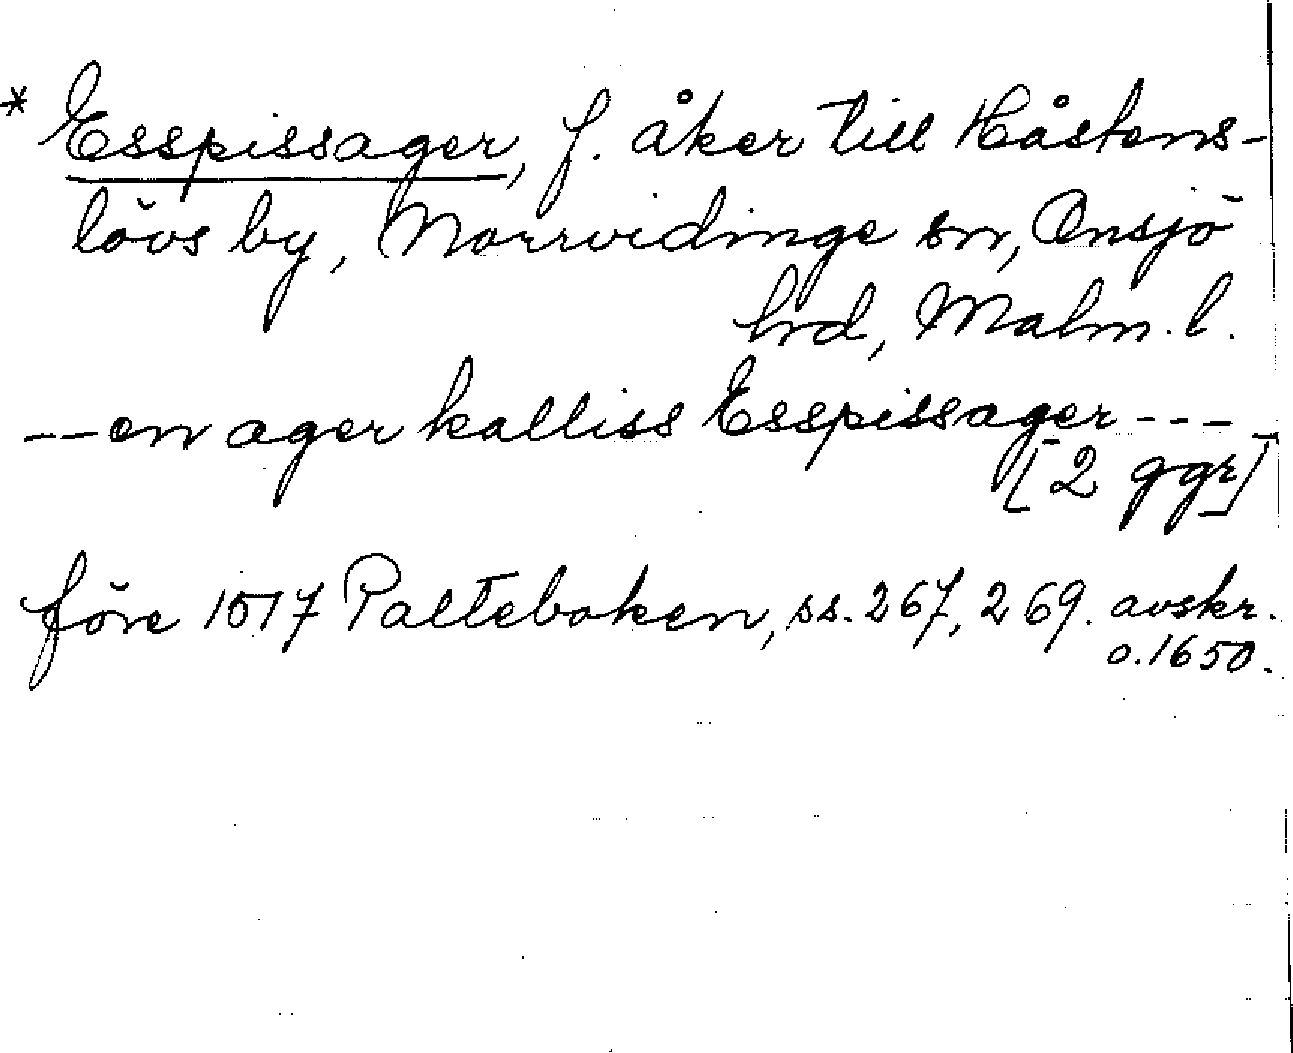 * Esspissager, f. åker till Håstens-
lövs by, Norrvidinge sn, Onsjö
hrd, Malm. l.
-- en ager kalliss Esspissager ---
[2 ggr]
före 1517 Palteboken, ss. 267, 269. avskr.
o. 1650.